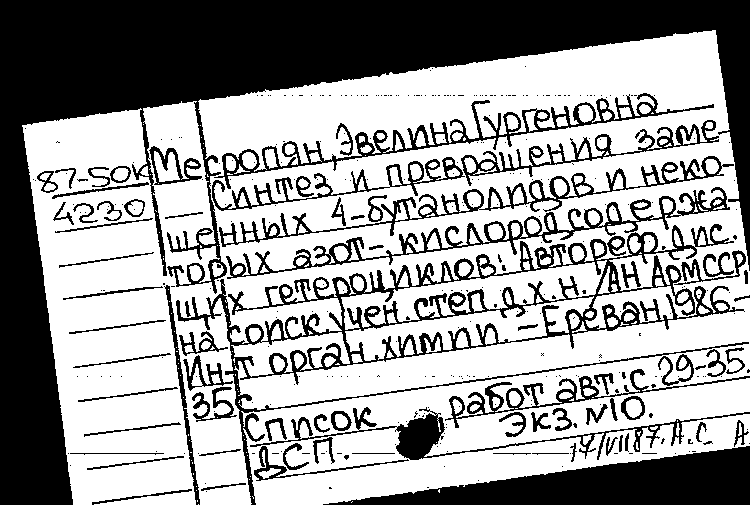 87-50К
4230
Месропян, Эвелина Гургеновна.
Синтез и превращения заме-
щенных 4-бутанолидов и неко-
торых азот-, кислородсодержа-
щих гетероциклов: Автореф. дис.
на соиск. учен. степ. д.х.н. /АН АрмССР,
Ин-т орган. химии. – Ереван, 1986.–
35с.
Список работ авт.: с. 29-35.
ДСП. Экз. №10.
17/VII87. А.С